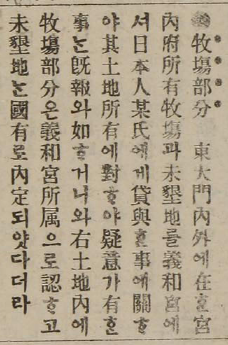 ●牧塲部分 東大門內外에在ᄒᆞᆫ宮
內府所有牧塲과未墾地를義和宮에
셔日本人某氏에게貸與ᄒᆞᆫ事에關ᄒᆞ
야其土地所有에對ᄒᆞ야疑意가有ᄒᆞᆫ
事ᄂᆞᆫ旣報와如ᄒᆞ거니와右土地內에
牧塲部分은義和宮所属으로認ᄒᆞ고
未墾地ᄂᆞᆫ國有로內定되얏다더라